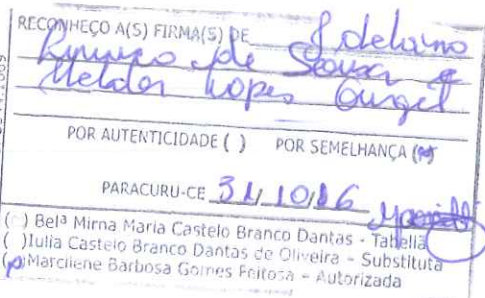 RECONHEÇO A(S) FIRMA(S) DE
de Sousa e
Helder Lopes Gurgel
POR AUTENTICIDADE ( ) POR SEMELHANÇA (x)
PARACURU-CE 31/10/16
( ) Belª Mirna Maria Castelo Branco Dantas - Tabeliã
( ) Julia Castelo Branco Dantas de Oliveira - Substituta
( ) Marcilene Barbosa Gomes Feitosa - Autorizada